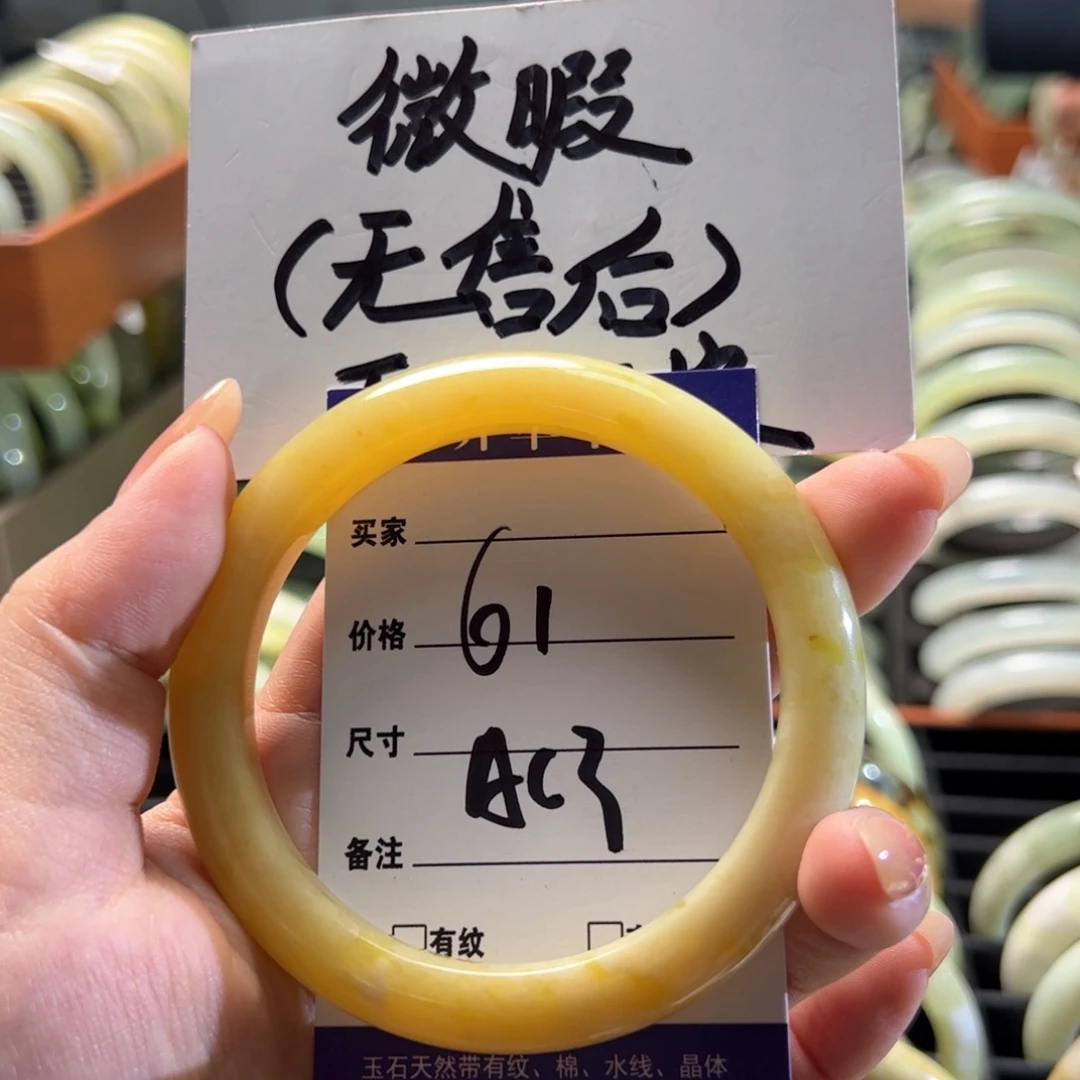 微暇
(无售后)
买家
价格 61
尺寸
AC3
备注
□有纹 □
玉石天然带有纹、棉、水线、晶体